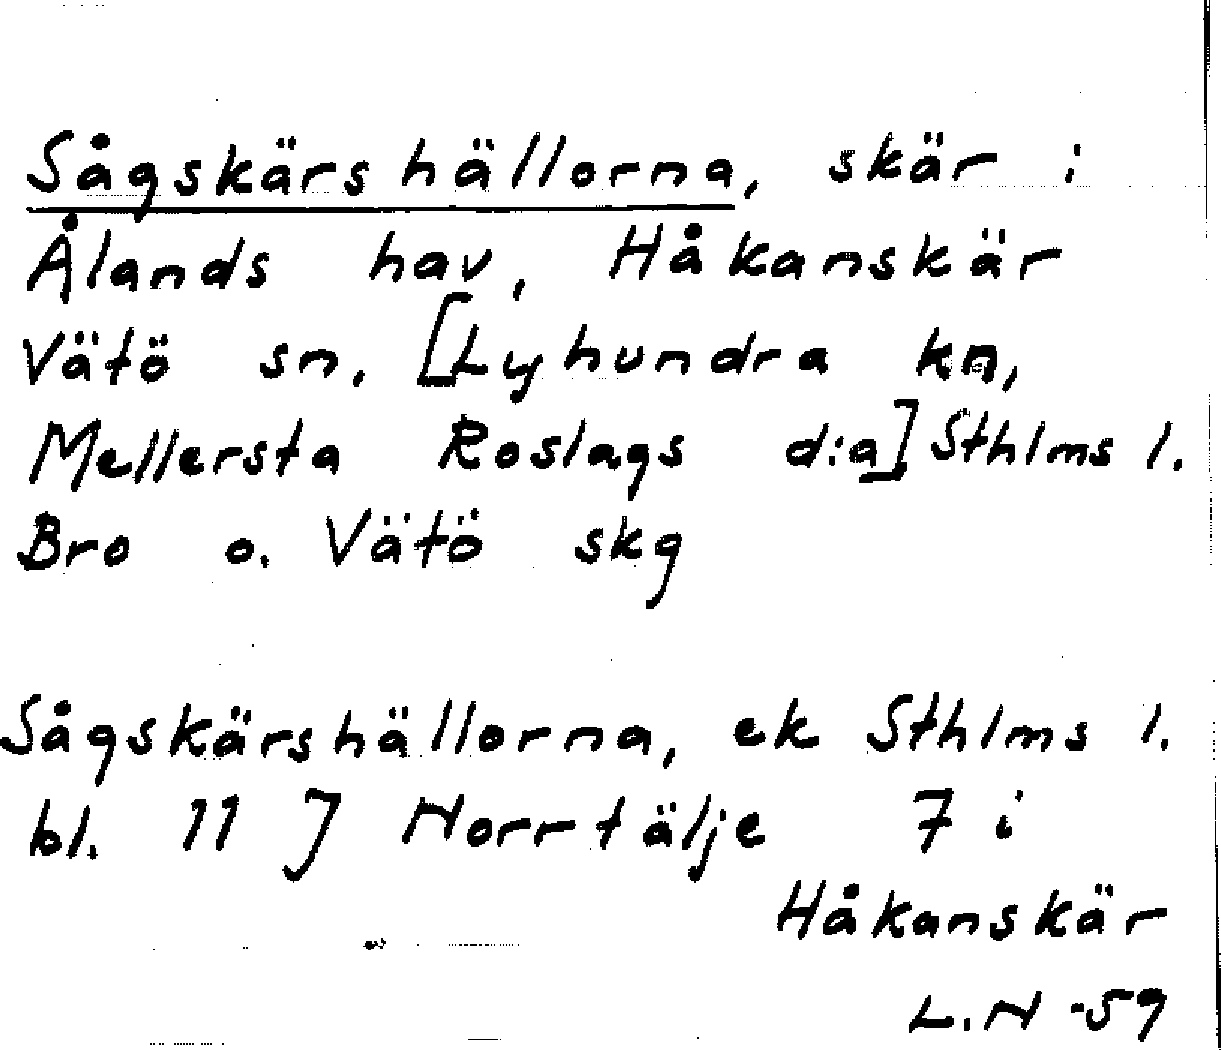 Sågskärshällorna, skär i
Ålands hav, Håkanskär
Vätö sn. [Lyhundra kn,
Mellersta Roslags d:a] Sthlms l.
Bro o. Vätö skg
Sågskärshällorna, ek Sthlms l.
bl. 11 J Norrtälje 7 i
Håkanskär
L.N -59